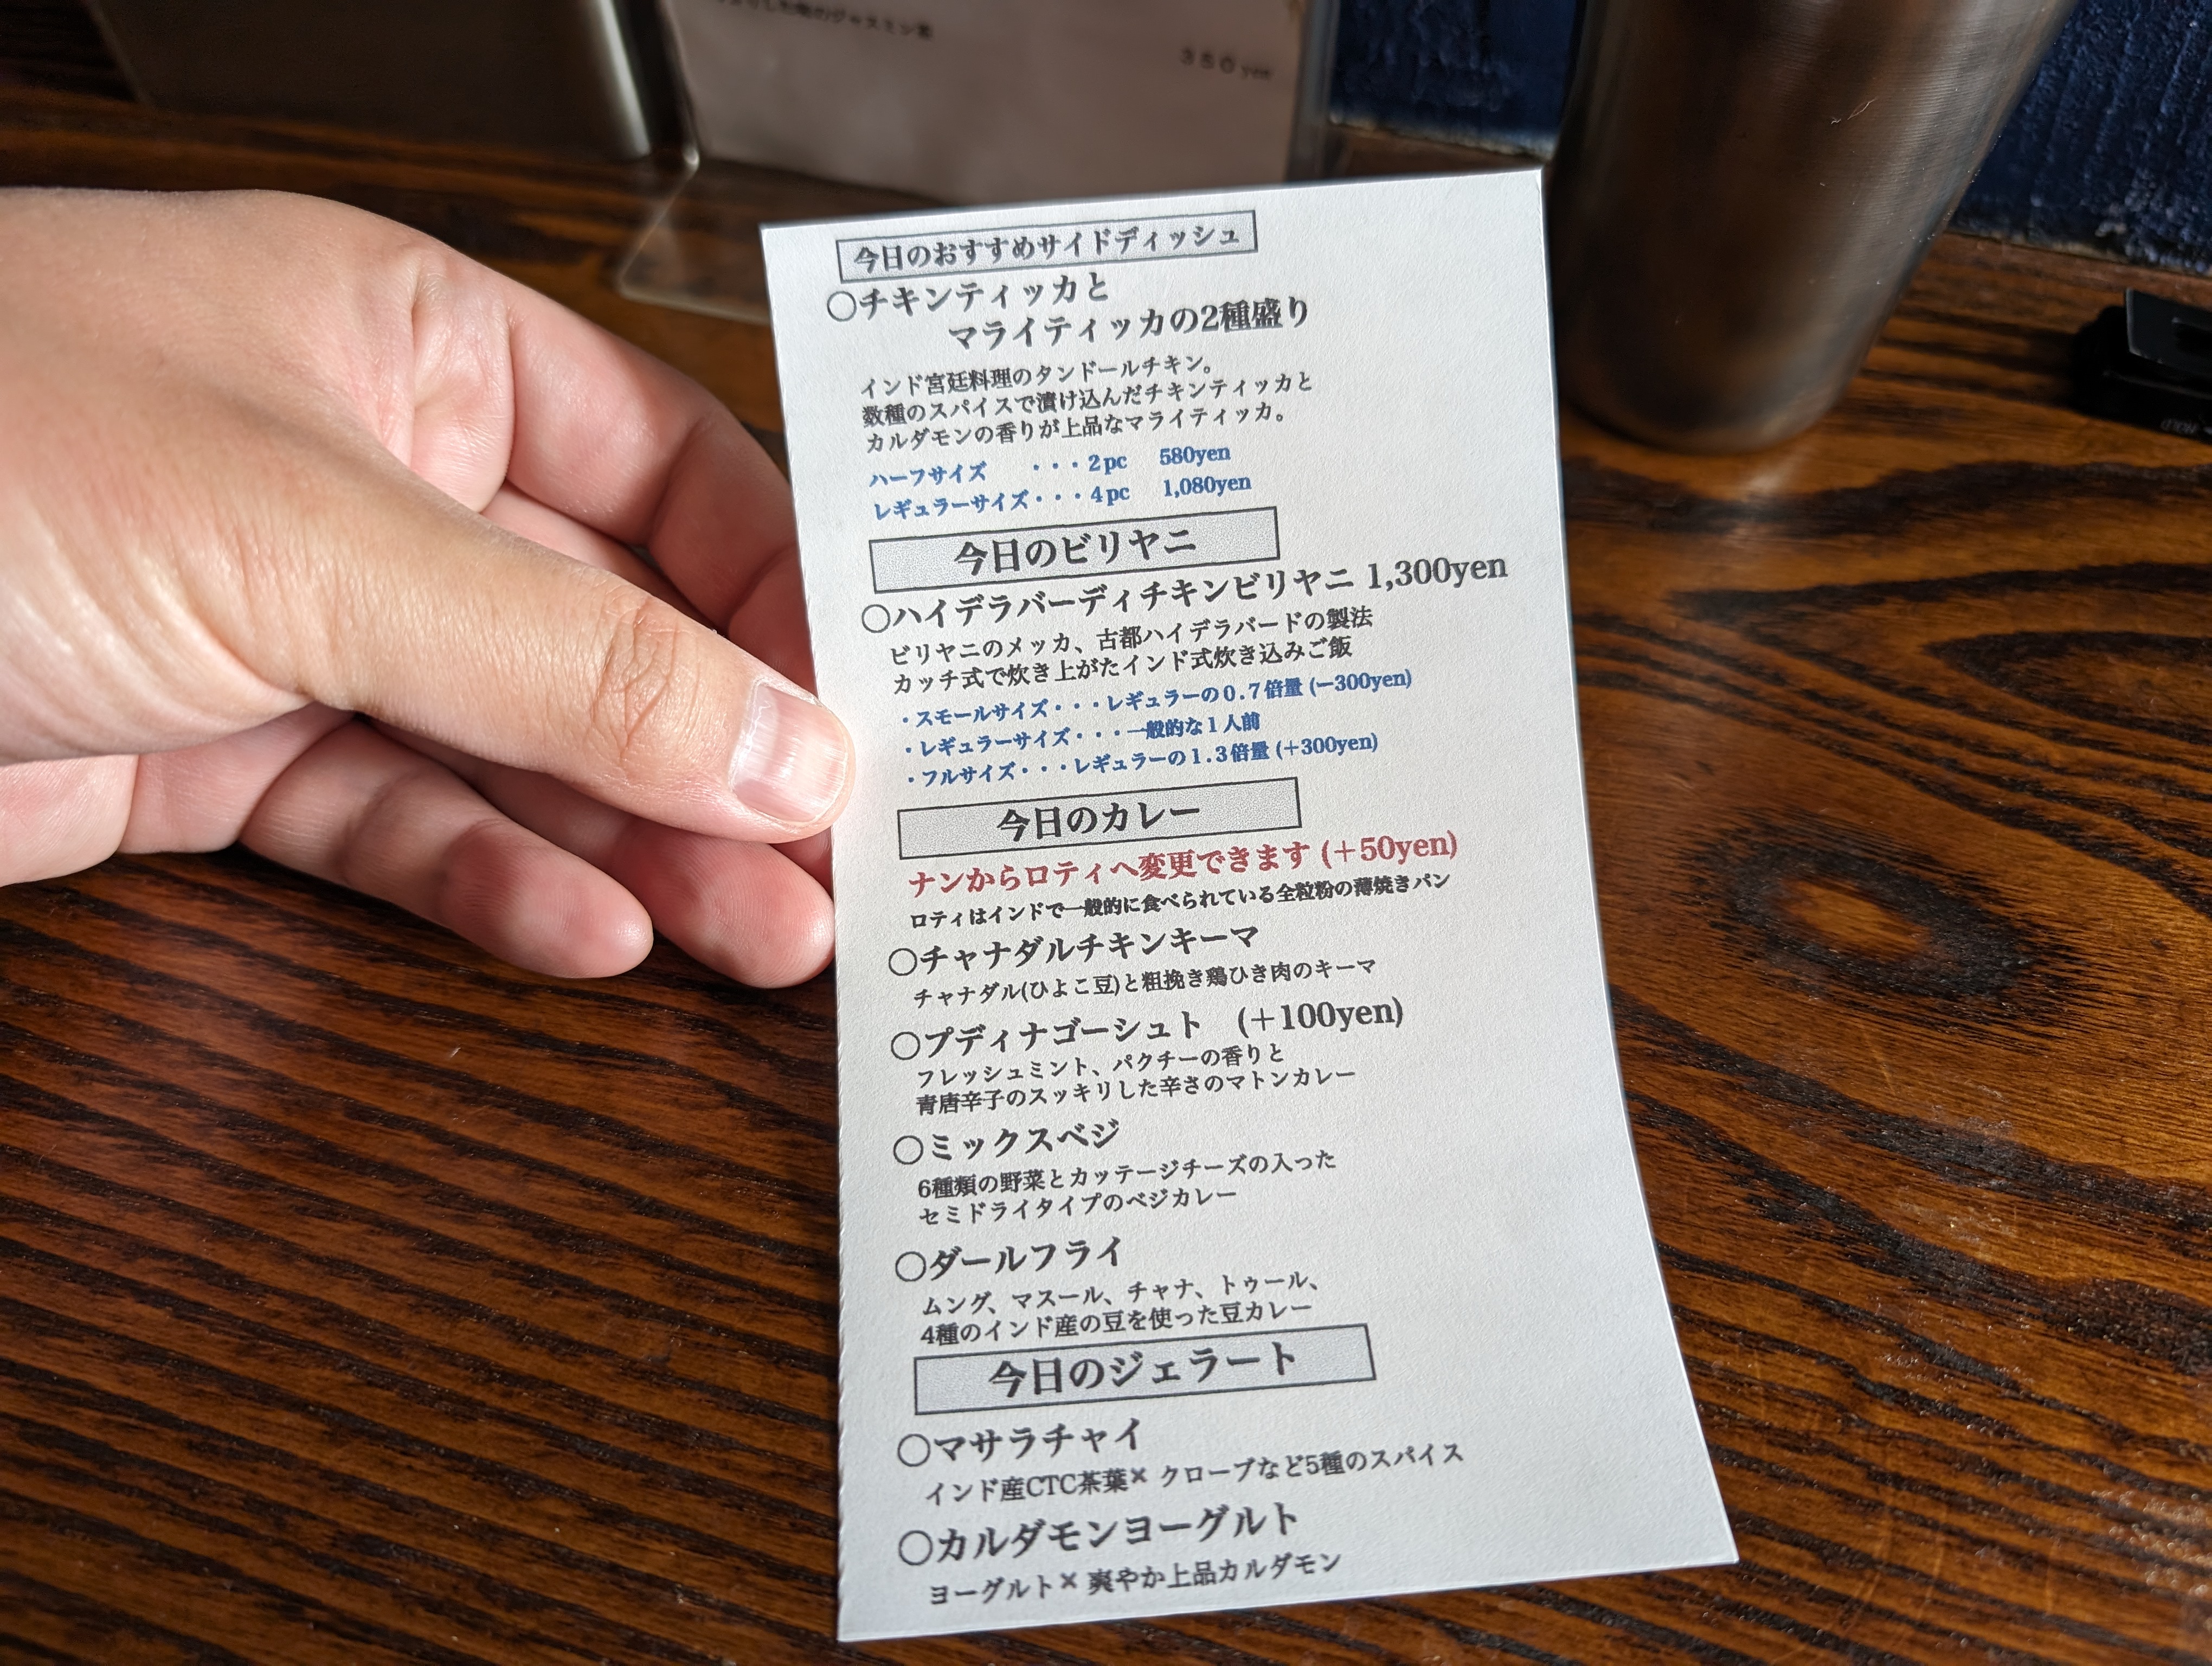 350 yen
今日のおすすめサイドディッシュ
〇チキンティッカと
マライティッカの2種盛り
インド宮廷料理のタンドールチキン。
数種のスパイスで漬け込んだチキンティッカと
カルダモンの香りが上品なマライティッカ。
ハーフサイズ ・・・2pc 580yen
レギュラーサイズ・・・4pc 1,080yen
今日のビリヤニ
〇ハイデラバーディチキンビリヤニ 1,300yen
ビリヤニのメッカ、古都ハイデラバードの製法
カッチ式で炊き上がたインド式炊き込みご飯
・スモールサイズ・・・レギュラーの0.7倍量 (−300yen)
・レギュラーサイズ・・・一般的な1人前
・フルサイズ・・・レギュラーの1.3倍量 (+300yen)
今日のカレー
ナンからロティへ変更できます (+50yen)
ロティはインドで一般的に食べられている全粒粉の薄焼きパン
〇チャナダルチキンキーマ
チャナダル(ひよこ豆)と粗挽き鶏ひき肉のキーマ
〇プディナゴーシュト (+100yen)
フレッシュミント、パクチーの香りと
青唐辛子のスッキリした辛さのマトンカレー
〇ミックスベジ
6種類の野菜とカッテージチーズの入った
セミドライタイプのベジカレー
〇ダールフライ
ムング、マスール、チャナ、トゥール、
4種のインド産の豆を使った豆カレー
今日のジェラート
〇マサラチャイ
インド産CTC茶葉× クローブなど5種のスパイス
〇カルダモンヨーグルト
ヨーグルト× 爽やか上品カルダモン